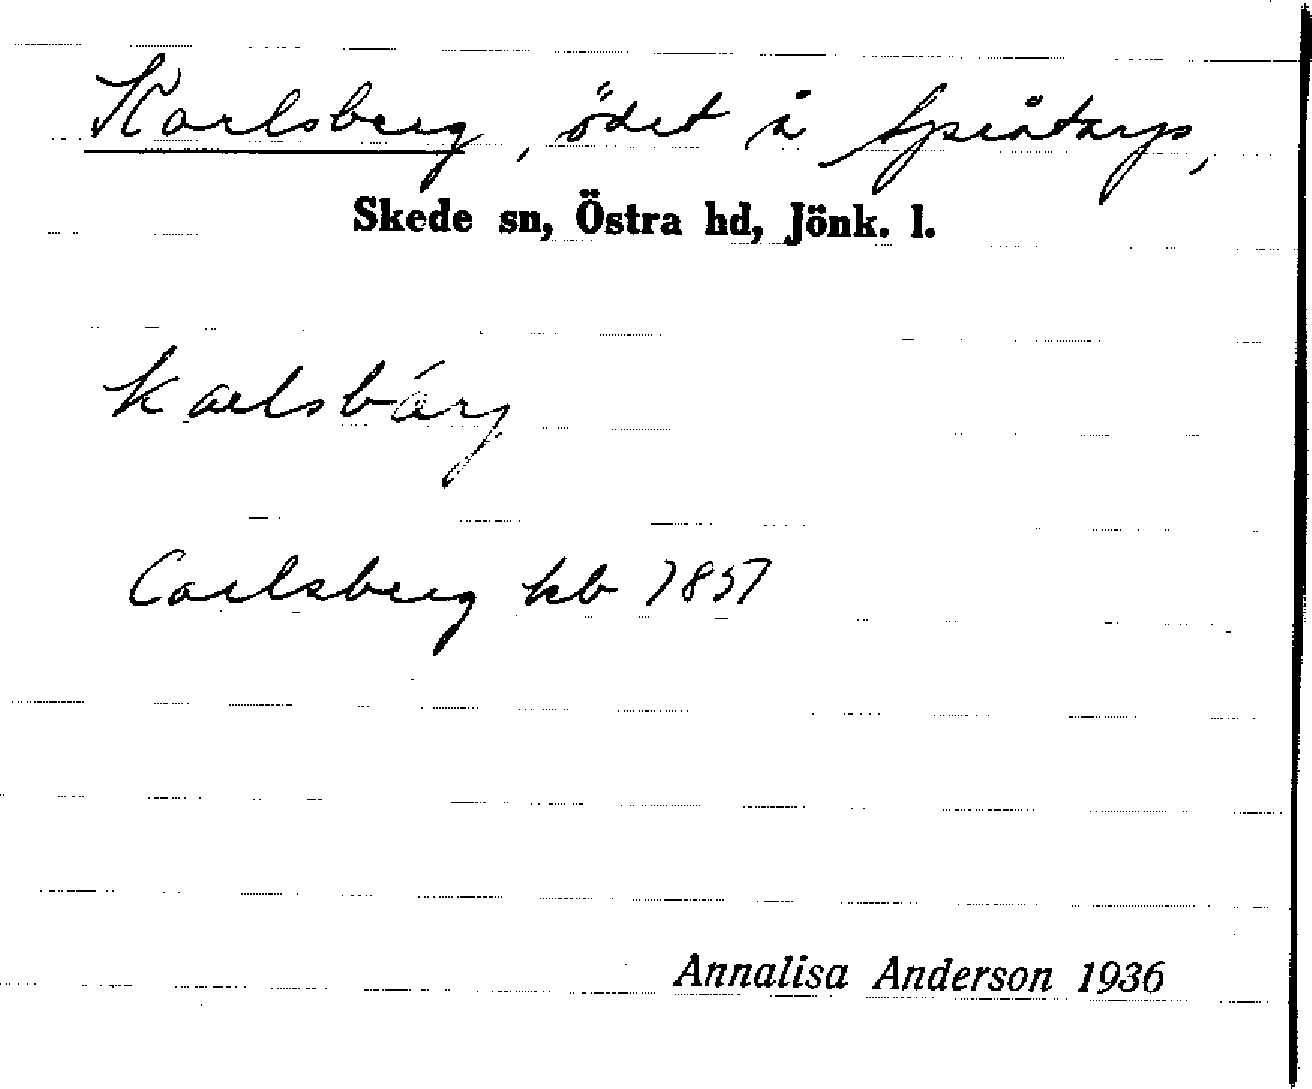 Karlsberg, ödet å Språtarp,
Skede sn, Östra hd, Jönk. l.
karlsbárj
Carlsberg kb 1857
Annalisa Anderson 1936